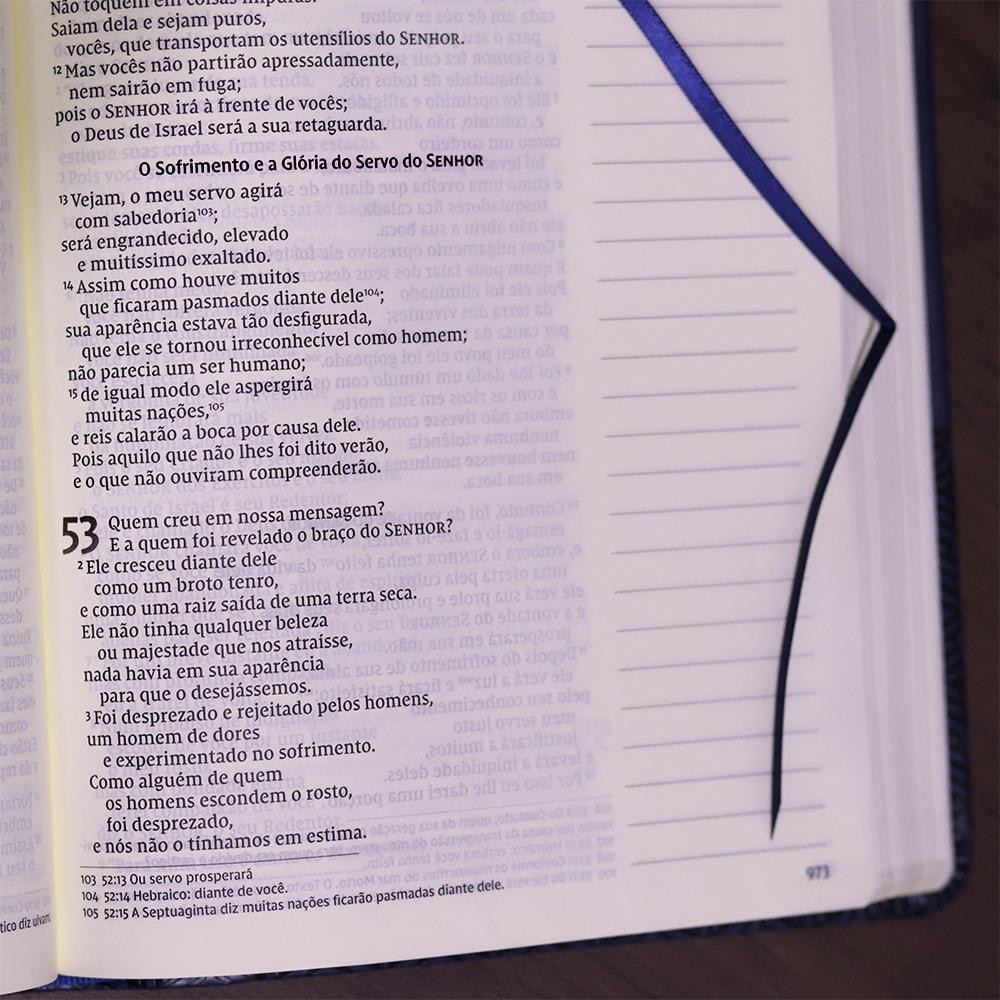 Não toquem em coisas impuras!
Saiam dela e sejam puros,
vocês, que transportam os utensílios do SENHOR.
12 Mas vocês não partirão apressadamente,
nem sairão em fuga;
pois o SENHOR irá à frente de vocês;
o Deus de Israel será a sua retaguarda.
O Sofrimento e a Glória do Servo do SENHOR
13 Vejam, o meu servo agirá
com sabedoria103;
será engrandecido, elevado
e muitíssimo exaltado.
14 Assim como houve muitos
que ficaram pasmados diante dele104;
sua aparência estava tão desfigurada,
que ele se tornou irreconhecível como homem;
não parecia um ser humano;
15 de igual modo ele aspergirá
muitas nações,105
e reis calarão a boca por causa dele.
Pois aquilo que não lhes foi dito verão,
e o que não ouviram compreenderão.
53 Quem creu em nossa mensagem?
E a quem foi revelado o braço do SENHOR?
2 Ele cresceu diante dele
como um broto tenro,
e como uma raiz saída de uma terra seca.
Ele não tinha qualquer beleza
ou majestade que nos atraísse,
nada havia em sua aparência
para que o desejássemos.
3 Foi desprezado e rejeitado pelos homens,
um homem de dores
e experimentado no sofrimento.
Como alguém de quem
os homens escondem o rosto,
foi desprezado,
e nós não o tínhamos em estima.
103 52:13 Ou servo prosperará
104 52:14 Hebraico: diante de você.
105 52:15 A Septuaginta diz muitas nações ficarão pasmadas diante dele.
973
tico diz uivam